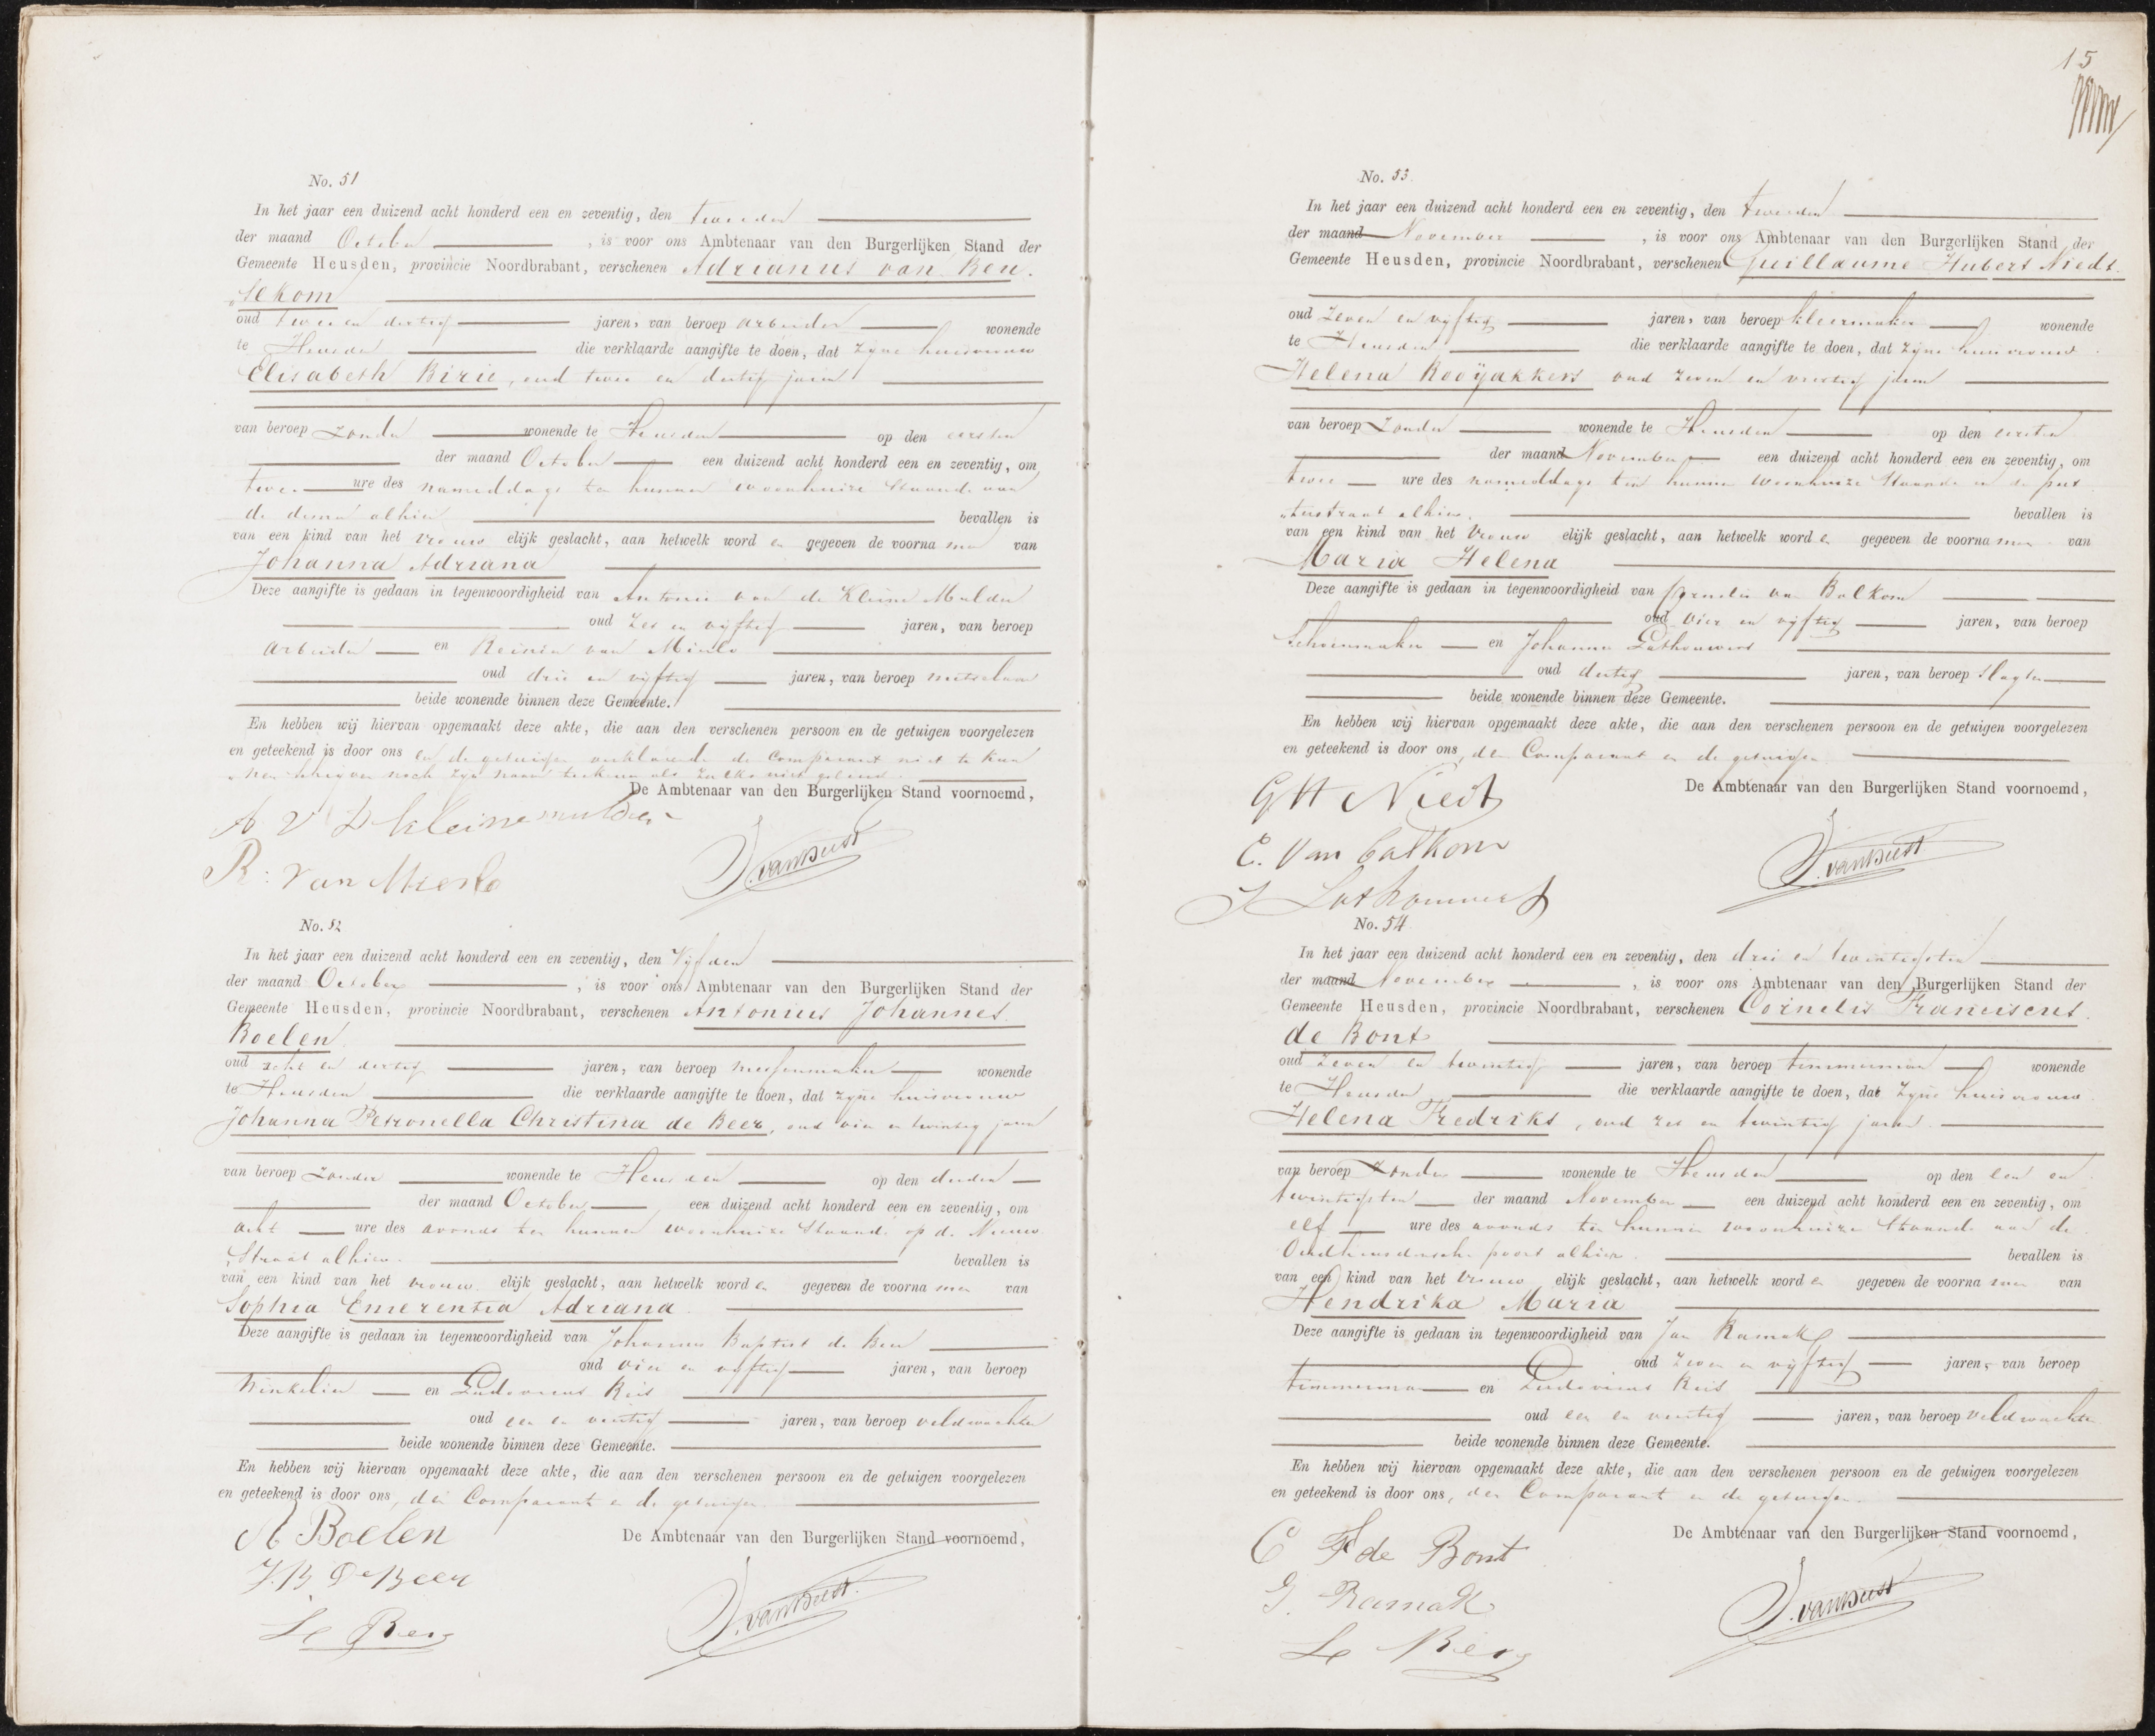 No. 51
In het jaar een duizend acht honderd een en zeventig, den tweeden
der maand October, is voor ons Ambtenaar van den Burgerlijken Stand der
Gemeente Heusden, provincie Noordbrabant, verschenen Adrianus van Beu-
"sekom
oud twee en dertig jaren, van beroep arbeider wonende
te Heusden die verklaarde aangifte te doen, dat zijne huisvrouw
Elisabeth Birie, oud twee en dertig jaren
van beroep zonder wonende te Heusden op den eersten
der maand October een duizend acht honderd een en zeventig, om
twee ure des nameddags ten hunnen woonhuize staande aan
de demer alhier bevallen is
van een kind van het vrouwelijk geslacht, aan hetwelk worden gegeven de voornamen van
Johanna Adriana
Deze aangifte is gedaan in tegenwoordigheid van Antonie van de Kleine Mulder
oud zes en vijftig jaren, van beroep
arbeider en Reinier van Mierlo
oud drie en vijftig jaren, van beroep metselaar
beide wonende binnen deze Gemeente.
En hebben wij hiervan opgemaakt deze akte, die aan den verschenen persoon en de getuigen voorgelezen
en geteekend is door ons en de getuigen verklarende de Comparant niet te kun
"nen schrijven noch zijn naam teekenen als zulks niet geleerd
De Ambtenaar van den Burgerlijken Stand voornoemd,
A V D kleine mulder
R. van Mierlo
J. van Beest
No. 52
In het jaar een duizend acht honderd een en zeventig, den Vijfden
der maand October, is voor ons Ambtenaar van den Burgerlijken Stand der
Gemeente Heusden, provincie Noordbrabant, verschenen Antonius Johannes
Boelen
oud acht en dertig jaren, van beroep messenmaker wonende
te Heusden die verklaarde aangifte te doen, dat zijne huisvrouw
Johanna Petronella Christina de Beer, oud vier en twintig jaren
van beroep zonder wonende te Heusden op den derden
der maand October een duizend acht honderd een en zeventig, om
acht ure des avonds ten hunnen woonhuize staande op de Nieuw
"straat alhier. bevallen is
van een kind van het vrouwelijk geslacht, aan hetwelk worden gegeven de voornamen van
Sophia Emerentia Adriana
Deze aangifte is gedaan in tegenwoordigheid van Johannes Baptist de Beer
oud vier en vijftig jaren, van beroep
Winkelier en Ludovicus
oud een en veertig jaren, van beroep veldwachter
beide wonende binnen deze Gemeente.
En hebben wij hiervan opgemaakt deze akte, die aan den verschenen persoon en de getuigen voorgelezen
en geteekend is door ons, den Comparant en de getuigen
De Ambtenaar van den Burgerlijken Stand voornoemd,
A Boelen
J. B De Beer
J. van Beest
15
No. 53
In het jaar een duizend acht honderd een en zeventig, den tweeden
der maand November, is voor ons Ambtenaar van den Burgerlijken Stand der
Gemeente Heusden, provincie Noordbrabant, verschenen Guillaume Hubert Niedt
oud zeven en vijftig jaren, van beroep kleermaker wonende
te Heusden die verklaarde aangifte te doen, dat zijne huisvrouw
Helena Rooyakkers oud zeven en veertig jaren
van beroep zonder wonende te Heusden op den eersten
der maand November een duizend acht honderd een en zeventig, om
twee ure des nameddags ten hunnen woonhuize staande in de put
"terstraat alhier. bevallen is
van een kind van het vrouwelijk geslacht, aan hetwelk worden gegeven de voornamen van
Maria Helena
Deze aangifte is gedaan in tegenwoordigheid van Cornelis van Balkom
oud vier en vijftig jaren, van beroep
Schoenmaker en Johannes Lathouwers
oud dertig jaren, van beroep slagter
beide wonende binnen deze Gemeente.
En hebben wij hiervan opgemaakt deze akte, die aan den verschenen persoon en de getuigen voorgelezen
en geteekend is door ons, den Comparant en de getuigen
De Ambtenaar van den Burgerlijken Stand voornoemd,
G H Niedt
C. Van balkom
J Lathouwers
J. van Beest
No. 54
In het jaar een duizend acht honderd een en zeventig, den drie en twintigsten
der maand November, is voor ons Ambtenaar van den Burgerlijken Stand der
Gemeente Heusden, provincie Noordbrabant, verschenen Cornelis Franciscus
de Bont
oud zeven en twintig jaren, van beroep timmerman wonende
te Heusden die verklaarde aangifte te doen, dat zijne huisvrouw
Helena Fredriks, oud zes en twintig jaren
van beroep zonder wonende te Heusden op den een en
twintigsten der maand November een duizend acht honderd een en zeventig, om
elf ure des avonds ten hunnen woonhuize staande aan de
Oudheusdensche poort alhier. bevallen is
van een kind van het vrouwelijk geslacht, aan hetwelk worden gegeven de voornamen van
Hendrika Maria
Deze aangifte is gedaan in tegenwoordigheid van Jan Ramak
oud zeven en vijftig jaren, van beroep
timmerman en Ludovicus
oud een en veertig jaren, van beroep veldwachter
beide wonende binnen deze Gemeente.
En hebben wij hiervan opgemaakt deze akte, die aan den verschenen persoon en de getuigen voorgelezen
en geteekend is door ons, den Comparant en de getuigen
De Ambtenaar van den Burgerlijken Stand voornoemd,
C F de Bont
J. Ramak
J. van Beest